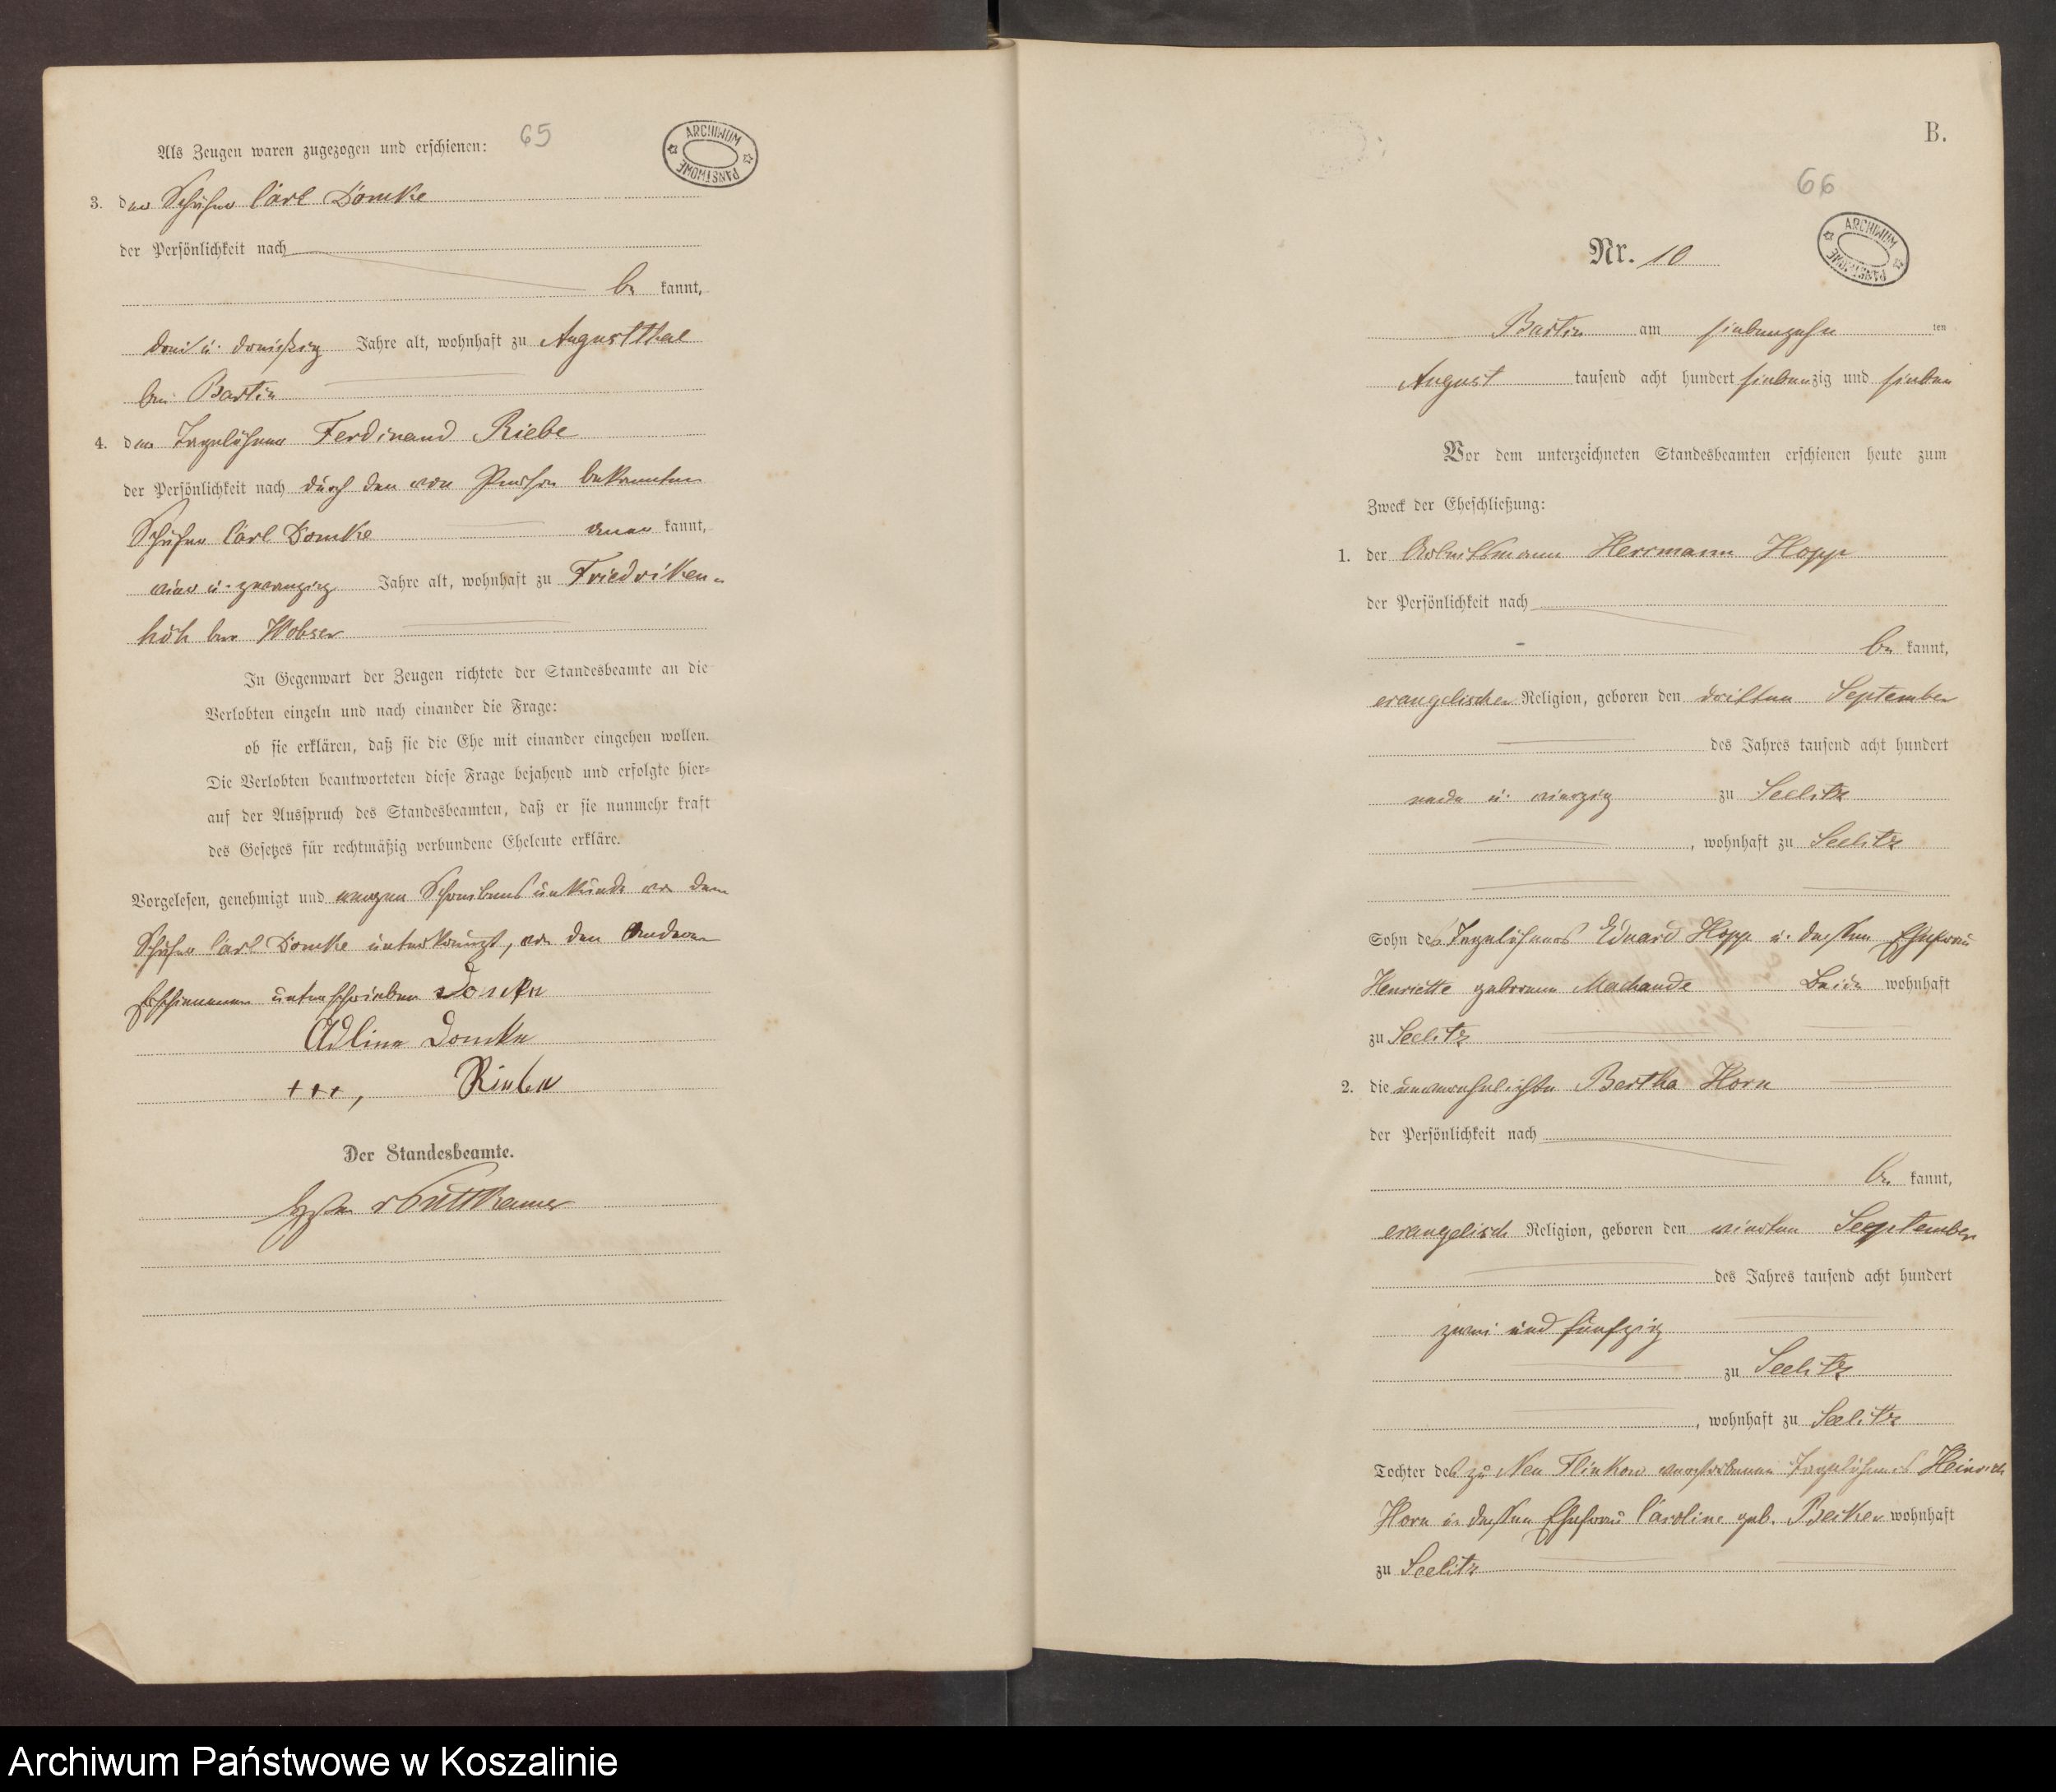 65
ARCHIWUM PAŃSTWOWE
Als Zeugen waren zugezogen und erschienen:
3. der Schäfer Carl Domke
der Persönlichkeit nach
be kannt,
drei u. dreißig Jahre alt, wohnhaft zu Augustthal
bei Bartin
4. der Tagelöhner Ferdinand Riebe
der Persönlichkeit nach durch den von Person bekannten
Schäfer Carl Domke aner kannt,
vier u. zwanzig Jahre alt, wohnhaft zu Friedriken-
höh bei Wobser
In Gegenwart der Zeugen richtete der Standesbeamte an die
Verlobten einzeln und nach einander die Frage:
ob sie erklären, daß sie die Ehe mit einander eingehen wollen.
Die Verlobten beantworteten diese Frage bejahend und erfolgte hier-
auf der Ausspruch des Standesbeamten, daß er sie nunmehr kraft
des Gesetzes für rechtmäßig verbundene Eheleute erkläre.
Vorgelesen, genehmigt und wegen Schreibensunkunde von dem
Schäfer Carl Domke unterkreuzt, von den Anderen
Erschienenen unterschrieben Domke
Adline Domke
+++, Rieben
Der Standesbeamte.
v Puttkamer
B.
66
ARCHIWUM PAŃSTWOWE
Nr. 10
Bartin am siebenzehn ten
August tausend acht hundert siebenzig und sieben
Vor dem unterzeichneten Standesbeamten erschienen heute zum
Zweck der Eheschließung:
1. der Arbeitsmann Herrmann Hopp
der Persönlichkeit nach
be kannt,
evangelischer Religion, geboren den dritten September
des Jahres tausend acht hundert
u. vierzig zu Seelitz
, wohnhaft zu Seelitz
Sohn des Tagelöhners Eduard Hopp u. dessen Ehefrau
Henriette geborene Machande Beide wohnhaft
zu Seelitz
2. die unverehelichte Bertha Horn
der Persönlichkeit nach
be kannt,
evangelisch Religion, geboren den vierten Seeptember
des Jahres tausend acht hundert
zwei und fünfzig
zu Seelitz
, wohnhaft zu Seelitz
Tochter des zu Neu Flinkow verstorbenen Tagelöhners Heinrich
Horn u. dessen Ehefrau Caroline geb. Becker wohnhaft
zu Seelitz
Archiwum Państwowe w Koszalinie